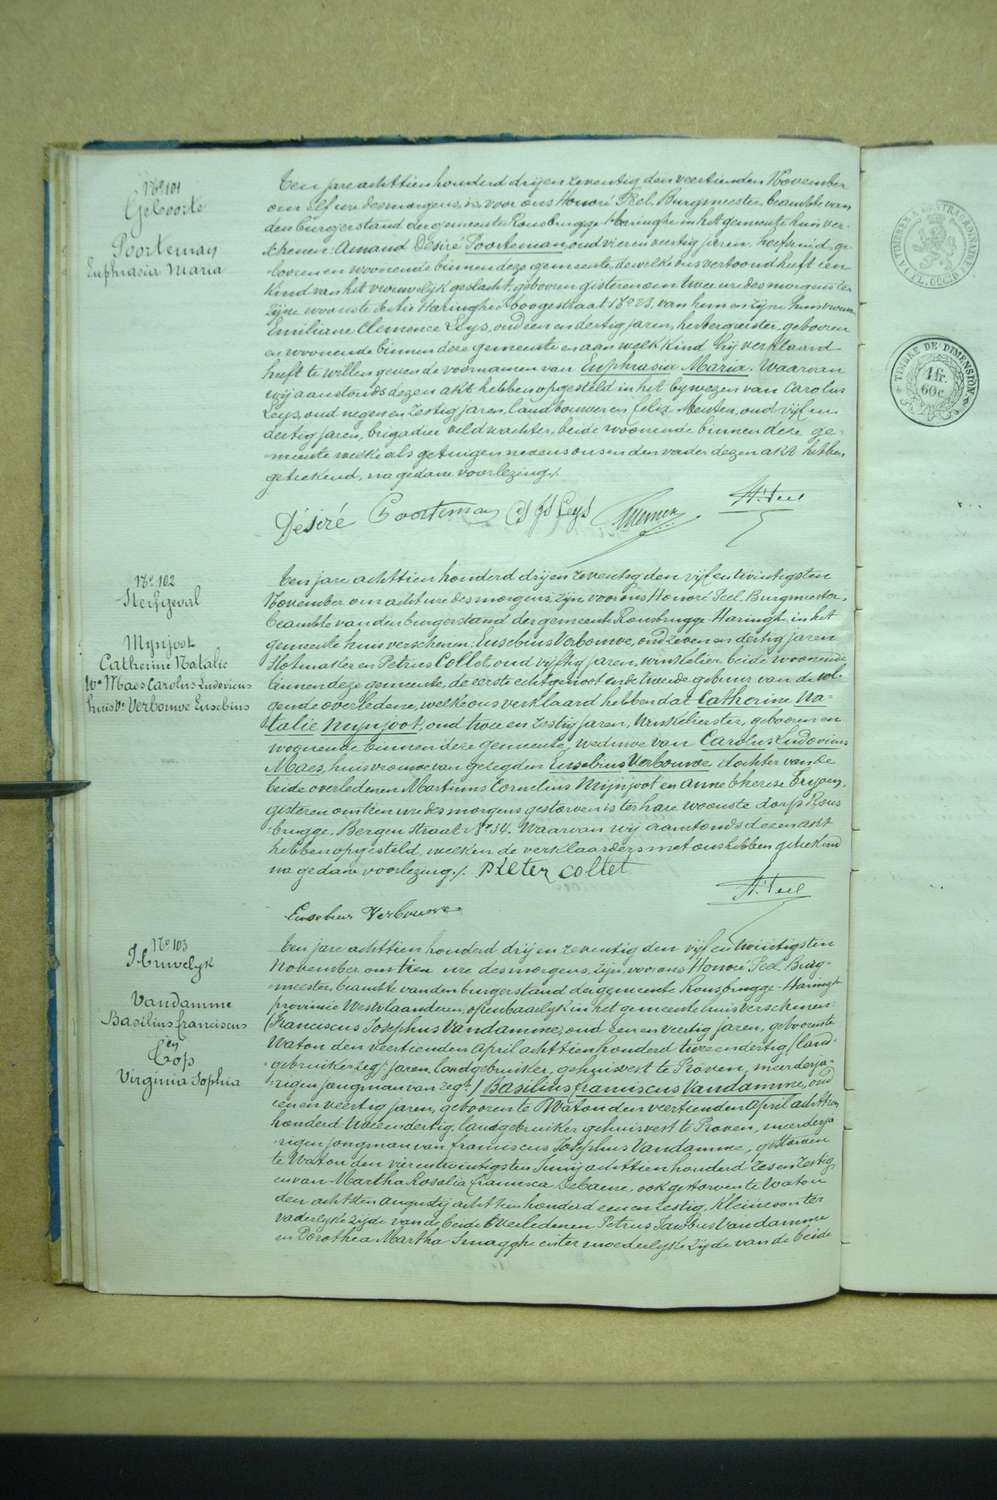 No 101
Geboorte
Poorteman
Euphrasia Maria
Ten jare achttien honderd drij en zeventig den veertienden November
om elf ure des morgens is voor ons Honoré Peel, Burgmeester, beambte van
den burgerstand der gemeente Rousbrugge-Haringhe in het gemeente huis ver-
schenen: Amand Désiré Poorteman, oud vier en veertig jaren, herfsmid, ge-
booren en woonende binnen deze gemeente, de welke ons vertoond heeft een
kind van het vrouwelijk geslacht, geboren gisteren om twee ure des morgens ter
zijne woonste sectie Haringhe hoogestraat No 23, van hem en zijne huisvrouw
Emiliane Clemence Leys, oud een en dertig jaren, herbergierster, gebooren
en woonende binnen deze gemeente en aan welk kind hij verklaard
heeft te willen geven de voornamen van Euphrasia Maria. Waarvan
wij aanstonds dezen akt hebben opgesteld in het bijwezen van Carolus
Leys, oud negen en zestig jaren, landbouwer en Felix Meuten, oud vijf en
dertig jaren, brigadier veldwachter, beide woonende binnen deze ge-
meente welke als getuigen nevens ons en den vader dezen akt hebben
geteekend, na gedane voorlezing./.
Désiré Poorteman Leys Hré Peel
No 102
Sterfgeval
Mijnjoot
Catherine Natalie
We Maes Carolus Ludovicus
huisve Verbouwe Eusebius
Ten jare achttien honderd drij en zeventig den vijf en twintigsten
November om acht ure des morgens, zijn voor ons Honoré Peel Burgmeester,
beambte van den burgerstand der gemeente Rousbrugge-Haringhe in het
gemeente huis verschenen: Eusebius Verbouwe, oud zeven en dertig jaren
Slotmaker en Petrus Collet, oud vijftig jaren, winkelier, beide woonende
binnen deze gemeente, de eerste echtgenoot en de tweede gebuur van de vol-
gende overledene, welke ons verklaard hebben dat Catherine Na-
talie Mijnjoot, oud twee en zestig jaren, Winkelierster, gebooren en
woonende binnen deze gemeente, weduwe van Carolus Ludovicus
Maes, huisvrouwe van gezegden Eusebius Verbouwe dochter van de
beide overledenen Martinus Cornelius Mijnjoot en Anne Therese Trijoen,
gisteren om tien ure des morgens gestorven is ter hare woonste dorp Rous
brugge, Bergen straat No 34. Waarvan wij aanstonds dezen akt
hebben opgesteld, welken de verklaarders met ons hebben geteekend
na gedane voorlezing./. Pieter collet
Hré Peel
Eusebius Verbouwe
No 103
Huwelijk
Vandamme
Basilius Franciscus
en
Top
Virginia Sophia
Ten jare achttien honderd drij en zeventig den vijf en twintigsten
November om tien ure des morgens, zijn voor ons Honoré Peel, Burg-
meester, beambte van den burgerstand der gemeente Rousbrugge-Haringhe
provincie Westvlaanderen, openbaarlijk in het gemeente huis verschenen:
(Franciscus Josephus Vandamme, oud een en veertig jaren, geboren te
Watou den veertienden April achttien honderd twee en dertig, land-
gebruiker zegg. jaren, landgebruiker, gehuisvest te Proven, meerderja-
rigen jongman van zegg.) Basilius Franciscus Vandamme, oud
een en veertig jaren, geboren te Watou den veertienden April achttien
honderd twee en dertig, landgebruiker gehuisvest te Proven, meerderja-
rigen jongman van Franciscus Josephus Vandamme, gestorven
te Watou den vier en twintigsten Junij achttien honderd zes en zestig
en van Martha Rosalia Francisca Debaene, ook gestorven te Watou
den achtsten augustij achttien honderd een en zestig. Kleinzoon ter
vaderlijke zijde van de beide Overledenen Petrus Jacobus Vandamme
en Dorothea Martha Smagghe en ter moederlijke zijde van de beide
TIMBRE DE DIMENSION
1 fr.
60 c.